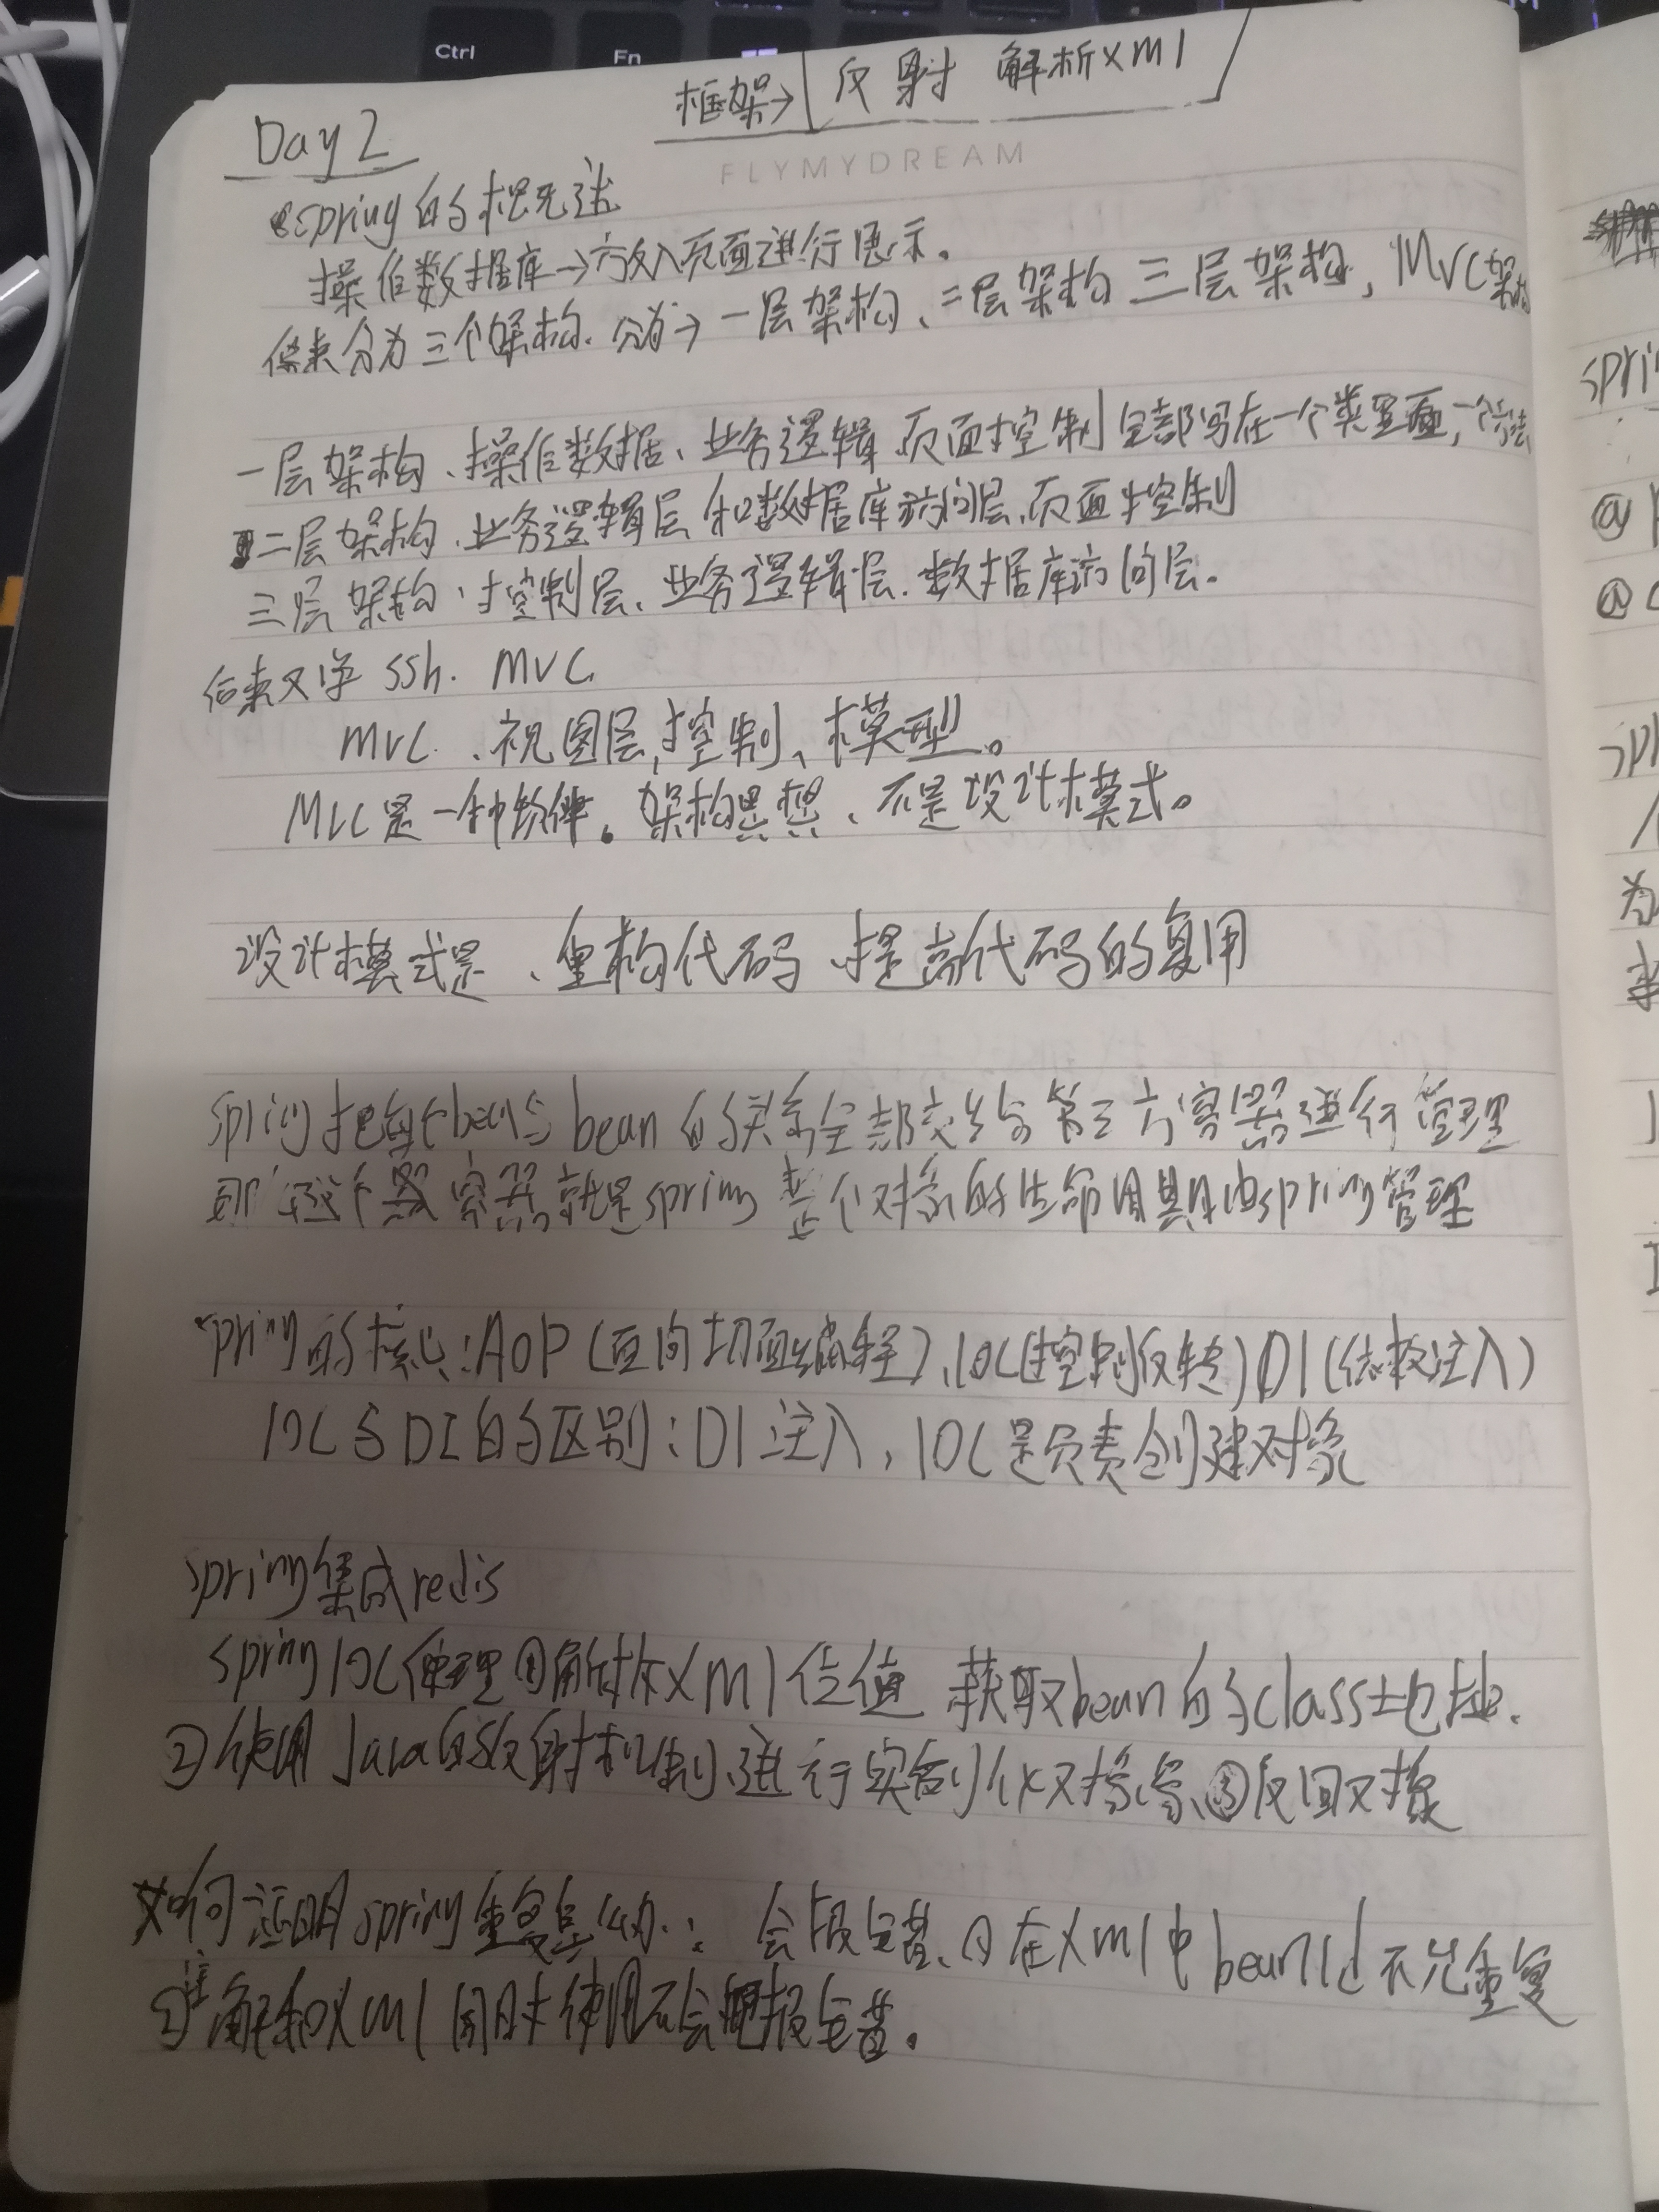 Ctrl
Fn
框架→ 反射 解析xml
Day 2
FLYMYDREAM
spring的概述
操作数据库→放入页面进行展示。
后来分为三个架构. 分为→一层架构、二层架构 三层架构, MVC架构
一层架构、操作数据、业务逻辑 页面控制 全部写在一个类里面,一个方法
二层架构、业务逻辑层 和数据库访问层、页面控制
三层架构、控制层、业务逻辑层. 数据库访问层.
后来又学 ssh. MVC
MVC 、视图层,控制、模型。
MVC是一种软件。架构思想、不是设计模式。
设计模式是、重构代码 提高代码的复用
spring把每个bean与bean的关系全部交给第三方容器进行管理
那这个容器就是spring 整个对象的生命周期由spring管理
spring的核心:AOP(面向切面编程)、IOC(控制反转) DI(依赖注入)
IOC与DI的区别:DI注入, IOC是负责创建对象
spring集成redis
spring IOC原理①解析xml 获取bean的class地址.
②使用Java的反射机制、进行实例化对象、③返回对象
如何证明spring重复: 会报错、①在xml中 bean id 不允重复
②注解和xml同时使用不会报错。
spri
@
@
spri
为